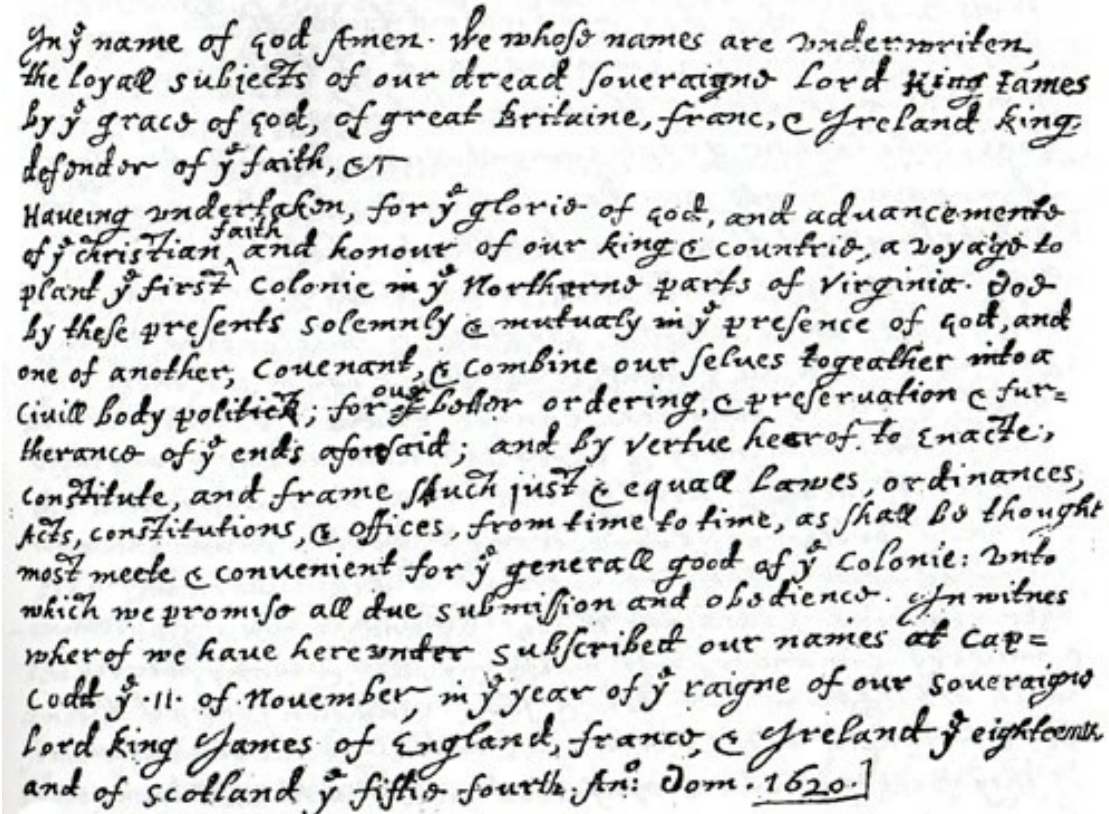 In yᵉ name of god Amen. We whose names are vnderwriten,
the loyall subjects of our dread soveraigne Lord King Iames
by yᵉ grace of god, of great Britaine, franc, & Ireland king,
defender of yᵉ faith, &c
Haveing vndertaken, for yᵉ glorie of god, and advancemente
of yᵉ christian ^faith and honour of our king & countrie, a voyage to
plant yᵉ first colonie in yᵉ Northerne parts of Virginia. Doe
by these presents solemnly & mutualy in yᵉ presence of god, and
one of another, covenant, & combine our selves togeather into a
Civill body politick; for our better ordering, & preservation & fur=
therance of yᵉ ends aforesaid; and by vertue hearof, to enacte,
constitute, and frame shuch just & equall Lawes, ordinances,
Acts, constitutions, & offices, from time to time, as shall be thought
most meete & convenient for yᵉ generall good of yᵉ colonie: vnto
which we promise all due submission and obedience. In witnes
wherof we have herevnder subscribed our names at Cap=
Codd yᵉ .11. of November, in yᵉ year of yᵉ raigne of our soveraigne
Lord king James of England, france, & Ireland yᵉ eighteenth
and of scotland yᵉ fiftie fourth. Anᵒ: Dom. 1620.]